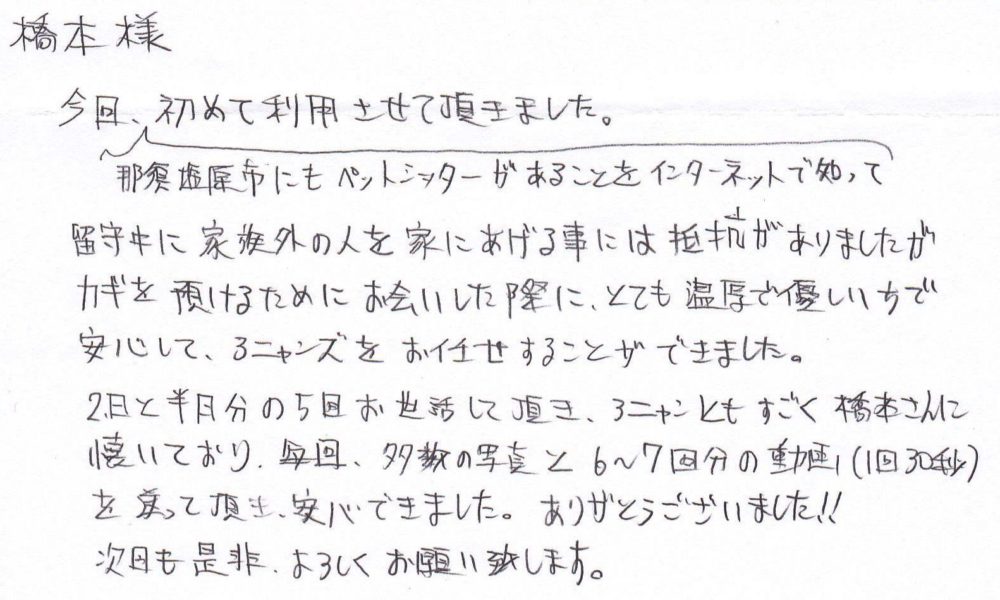 橋本様
今回、初めて利用させて頂きました。
那須塩原市にもペットシッターがあることをインターネットで知って
留守中に家族外の人を家にあげる事には抵抗がありましたが
カギを預けるためにお会いした際に、とても温厚で優しい方で
安心して、3ニャンズをお任せすることができました。
2日と半日分の5回お世話して頂き、3ニャンともすごく橋本さんに
懐いており、毎回、多数の写真と6〜7回分の動画(1回30秒)
を 頂き、安心できました。ありがとうございました!!
次回も是非、よろしくお願い致します。